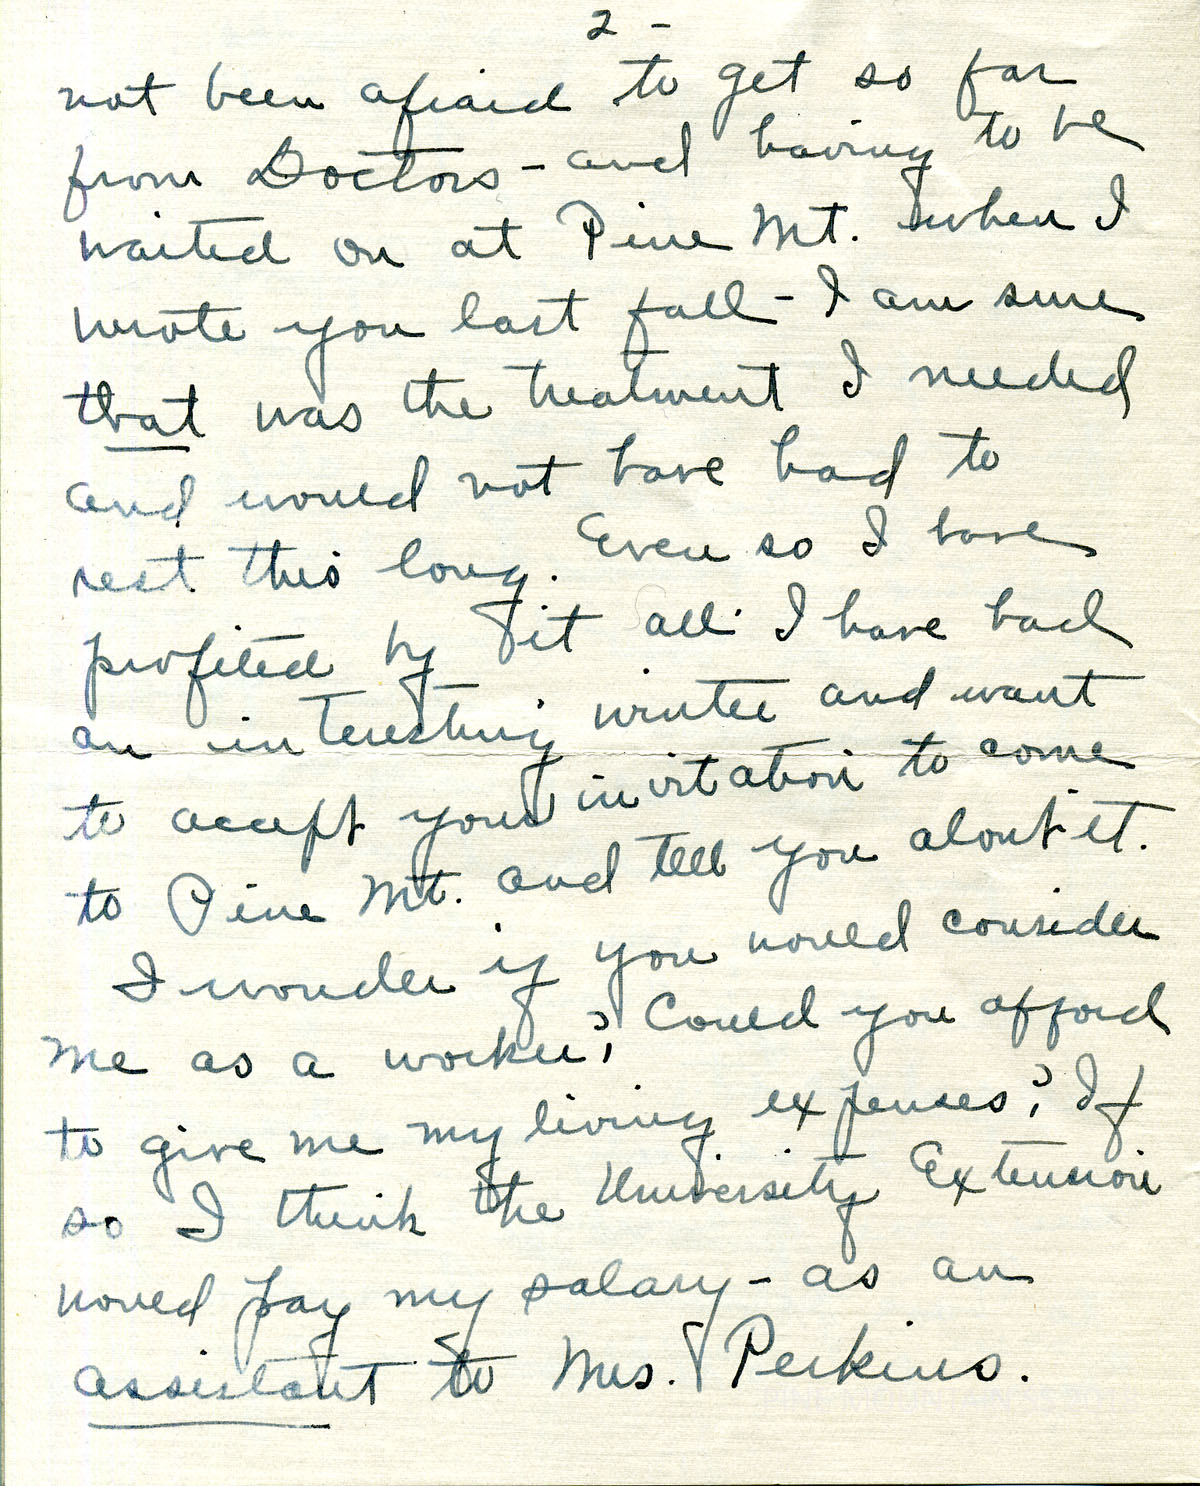 2 -
not been afraid to get so far
from Doctors - and having to be
waited on at Pine Mt. when I
wrote you last fall - I am sure
that was the treatment I needed
and would not have had to
rest this long. Even so I have
profited by it all. I have had
an interesting winter and want
to accept your invitation to come
to Pine Mt. and tell you about it.
I wonder if you would consider
me as a worker? Could you afford
to give me my living expenses? If
so I think the University Extension
would pay my salary - as an
assistant to Mrs. Perkins.